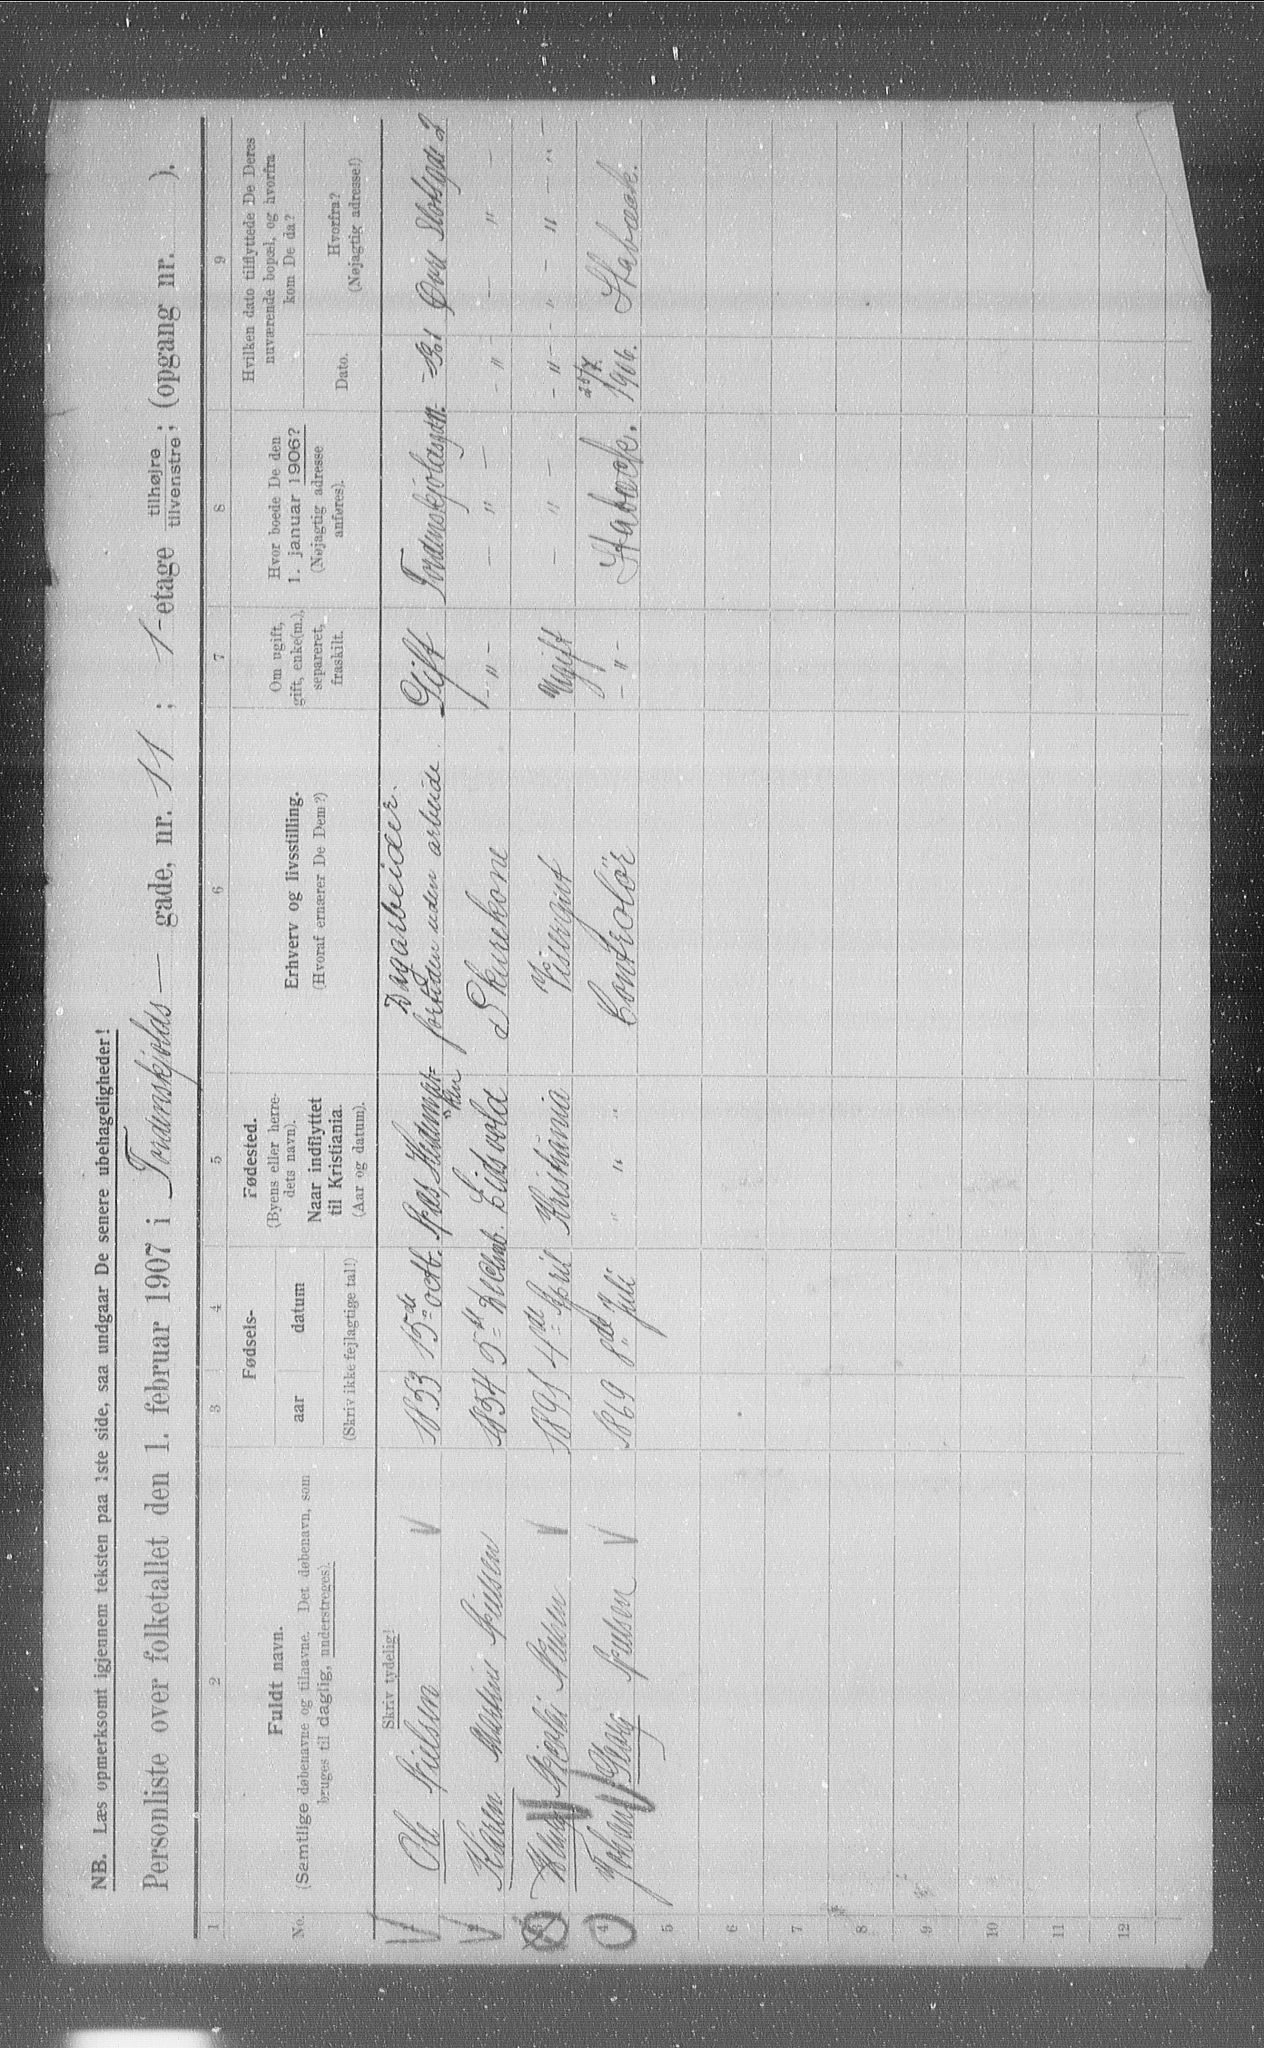 NB. Læs opmerksomt igjennem teksten paa 1ste side, saa undgaar De senere ubehageligheder!
Personliste over folketallet den 1. februar 1907 i Tordenskjolds — gade, nr. 11 ; 1 -etage tilhøjre tilvenstre ; (opgang nr. ).
1 2 3 4 5 6 7 8 9
No.
Fuldt navn.
(Samtlige døbenavne og tilnavne. Det døbenavn, som
bruges til daglig, understreges).
Fødsels-
aar datum
(Skriv ikke fejlagtige tal!)
Fødested.
(Byens eller herre-
dets navn).
Naar indflyttet
til Kristiania.
(Aar og datum).
Erhverv og livsstilling.
(Hvoraf ernærer De Dem?)
Om ugift,
gift, enke(m.),
separeret,
fraskilt.
Hvor boede De den
1. januar 1906?
(Nøjagtig adresse
anføres).
Hvilken dato tilflyttede De Deres
nuværende bopæl, og hvorfra
kom De da?
Dato.
Hvorfra?
(Nøjagtig adresse!)
Skriv tydelig!
Dagarbeider.
Ole Nielsen 1853 15de octb. Hedemar- ken fortiden uden arbeide. Gift Tordenskjolsgd 11. Øvre Slotsgde 2
Karen Martine Nielsen 1854 5te Decbmb. Eidsvold Skurekone - " - — " — - " - — " —
Nielsen 1891 4de April Kristiania Visergut Ugift — " — - " - - " - " - " -
Johan Georg Nielsen 1869 8de Juli " " " Controlör - " - Stabæck. 1906. Stabæck.
4
5
6
7
8
9
10
11
12